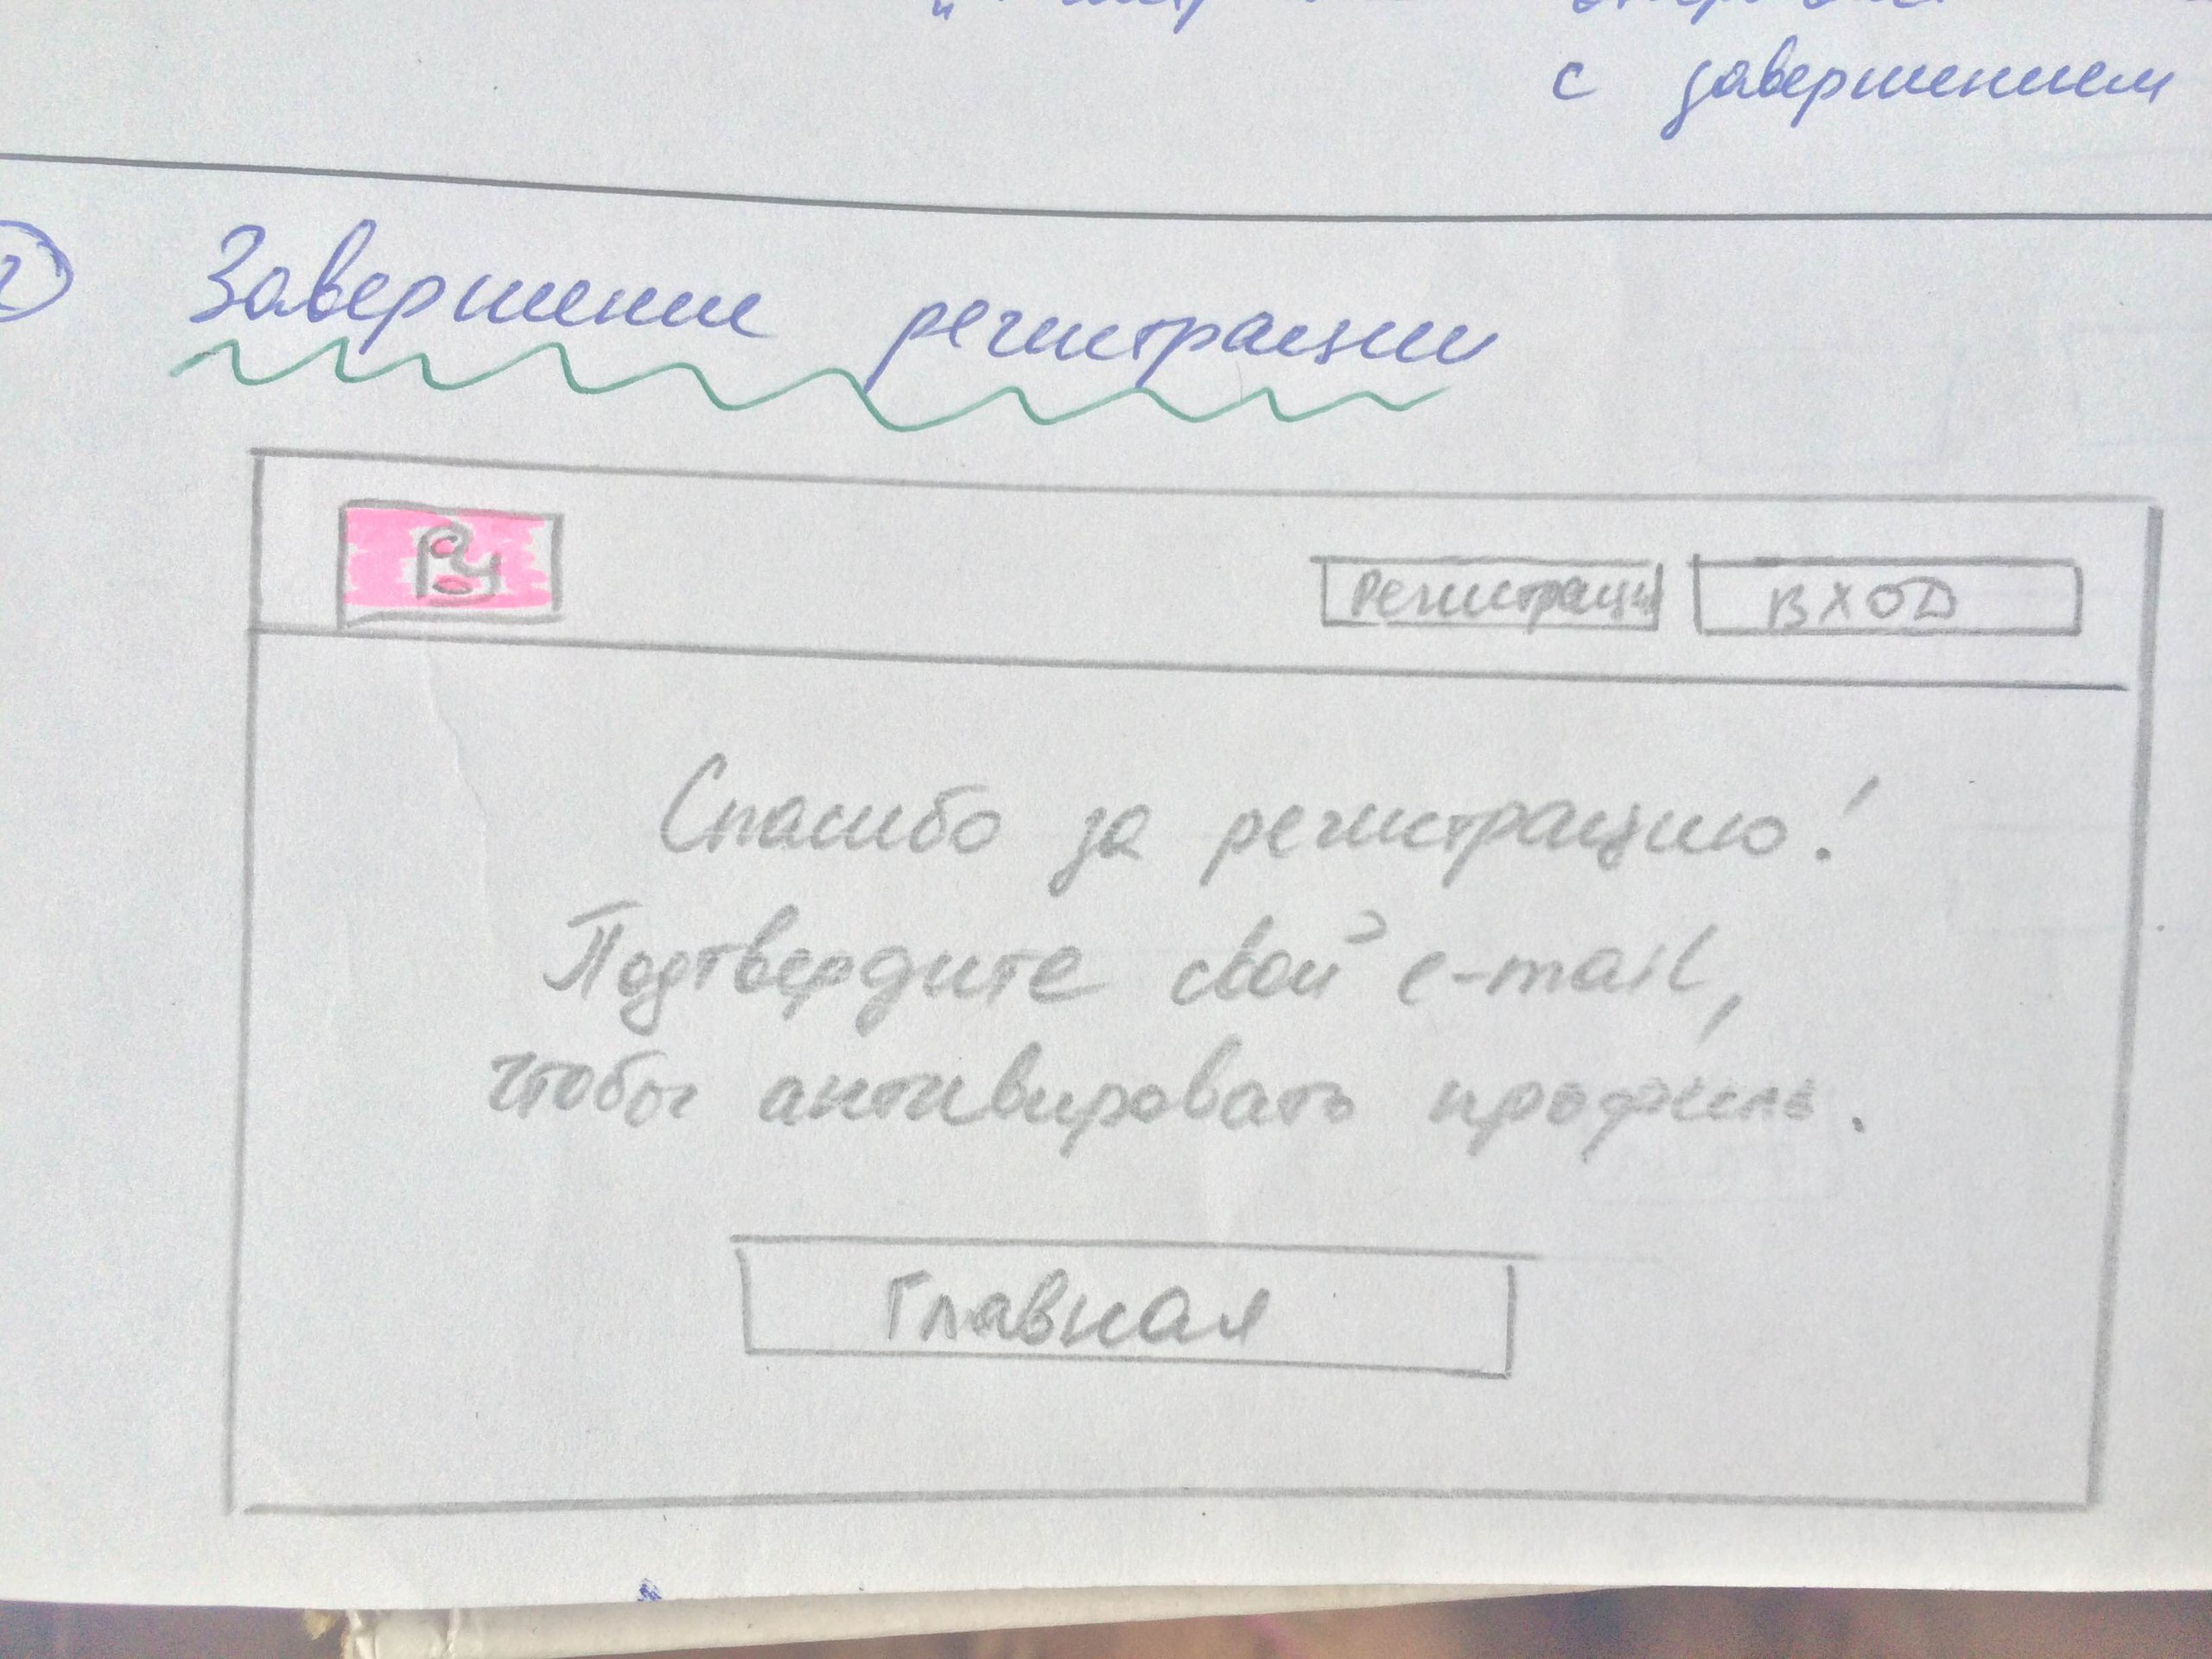 с завершением
Завершение регистрации
Ру
Регистрация ВХОД
Спасибо за регистрацию!
Подтвердите свой e-mail,
чтобы активировать профиль.
Главная